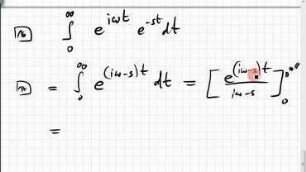 ∫₀^∞ e^{iωt} e^{-st} dt
= ∫₀^∞ e^{(iω-s)t} dt = [ e^{(iω-s)t} / (iω-s) ]₀^∞
=